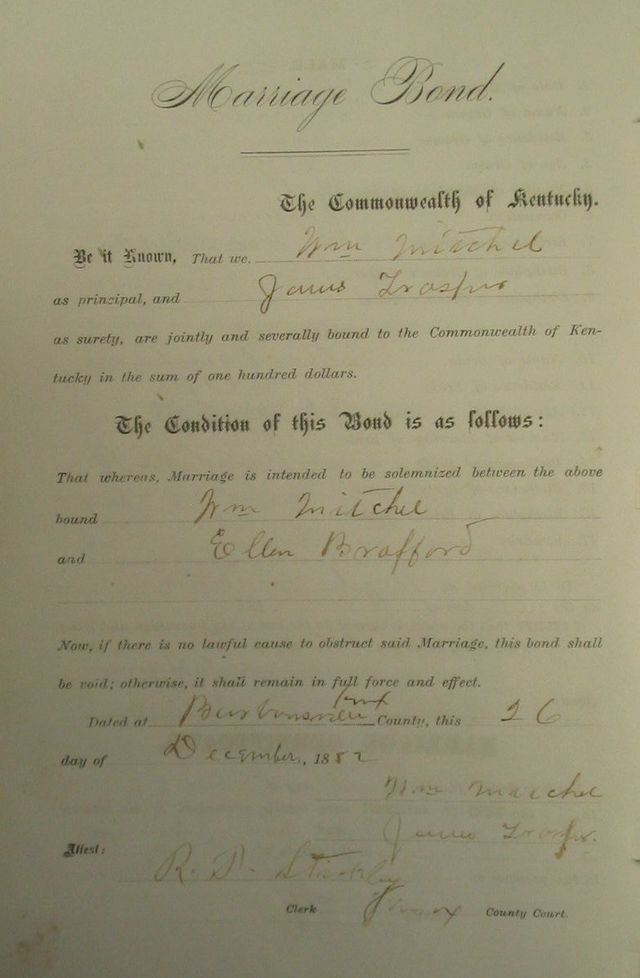 Marriage Bond.
The Commonwealth of Kentucky.
Be it Known, That we, Wm Mitchel
as principal, and James Trosper
as surety, are jointly and severally bound to the Commonwealth of Ken-
tucky in the sum of one hundred dollars.
The Condition of this Bond is as follows:
That whereas, Marriage is intended to be solemnized between the above
bound Wm Mitchel
and Ellen Brafford
Now, if there is no lawful cause to obstruct said Marriage, this bond shall
be void; otherwise, it shall remain in full force and effect.
Dated at Barbourville Knox County, this 26
day of December, 1882
Wm Mitchel
James Trosper.
Attest:
R. D.
Clerk Knox County Court.